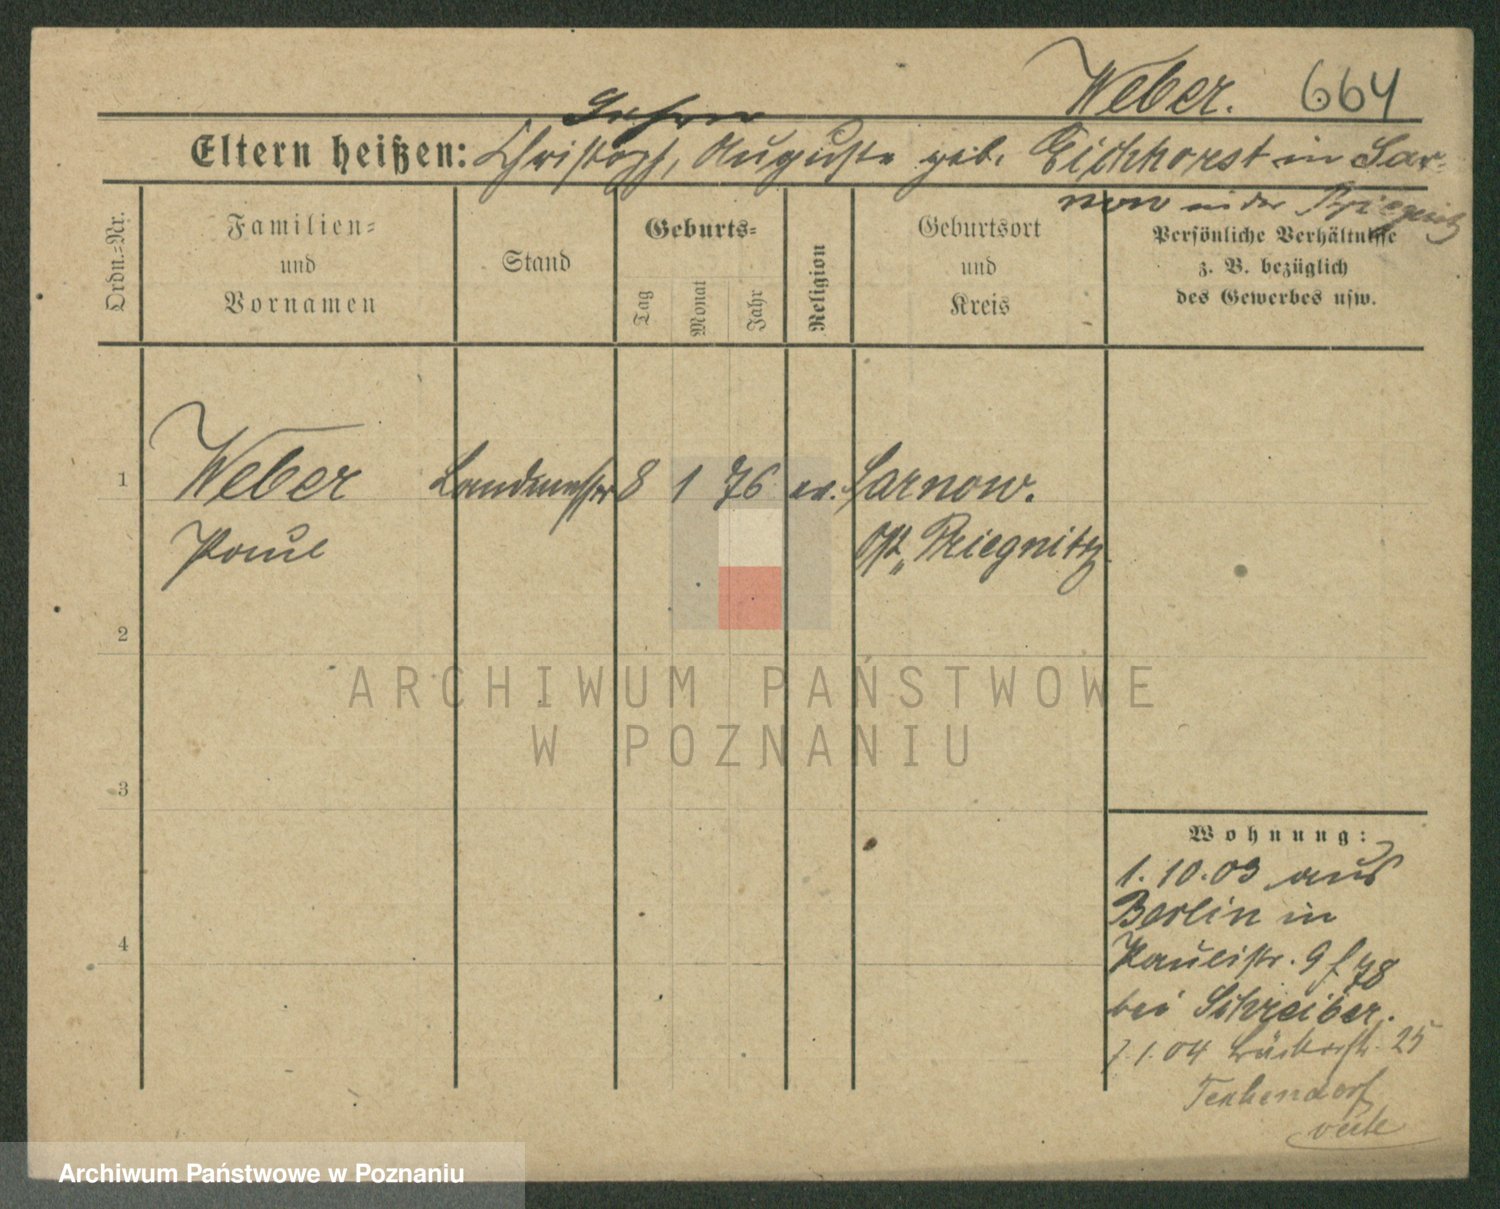 Weber. 664
Eltern heißen: Christoph, Auguste geb. Eichhorst in Sar-
now in der Priegnitz
Ordn.-Nr.
Familien-
und
Vornamen
Stand
Geburts-
Tag
Monat
Jahr
Religion
Geburtsort
und
Kreis
Persönliche Verhältnisse
z. B. bezüglich
des Gewerbes usw.
1 Weber Landmesser 8 1 76 ev. Sarnow.
Paul Ost„ Priegnitz
2
ARCHIWUM PAŃSTWOWE
W POZNANIU
3
Wohnung:
1.10.03 aus
Berlin in
4
Paulistr. 9 f 78
bei Schreiber.
7 1.04 25
Archiwum Państwowe w Poznaniu